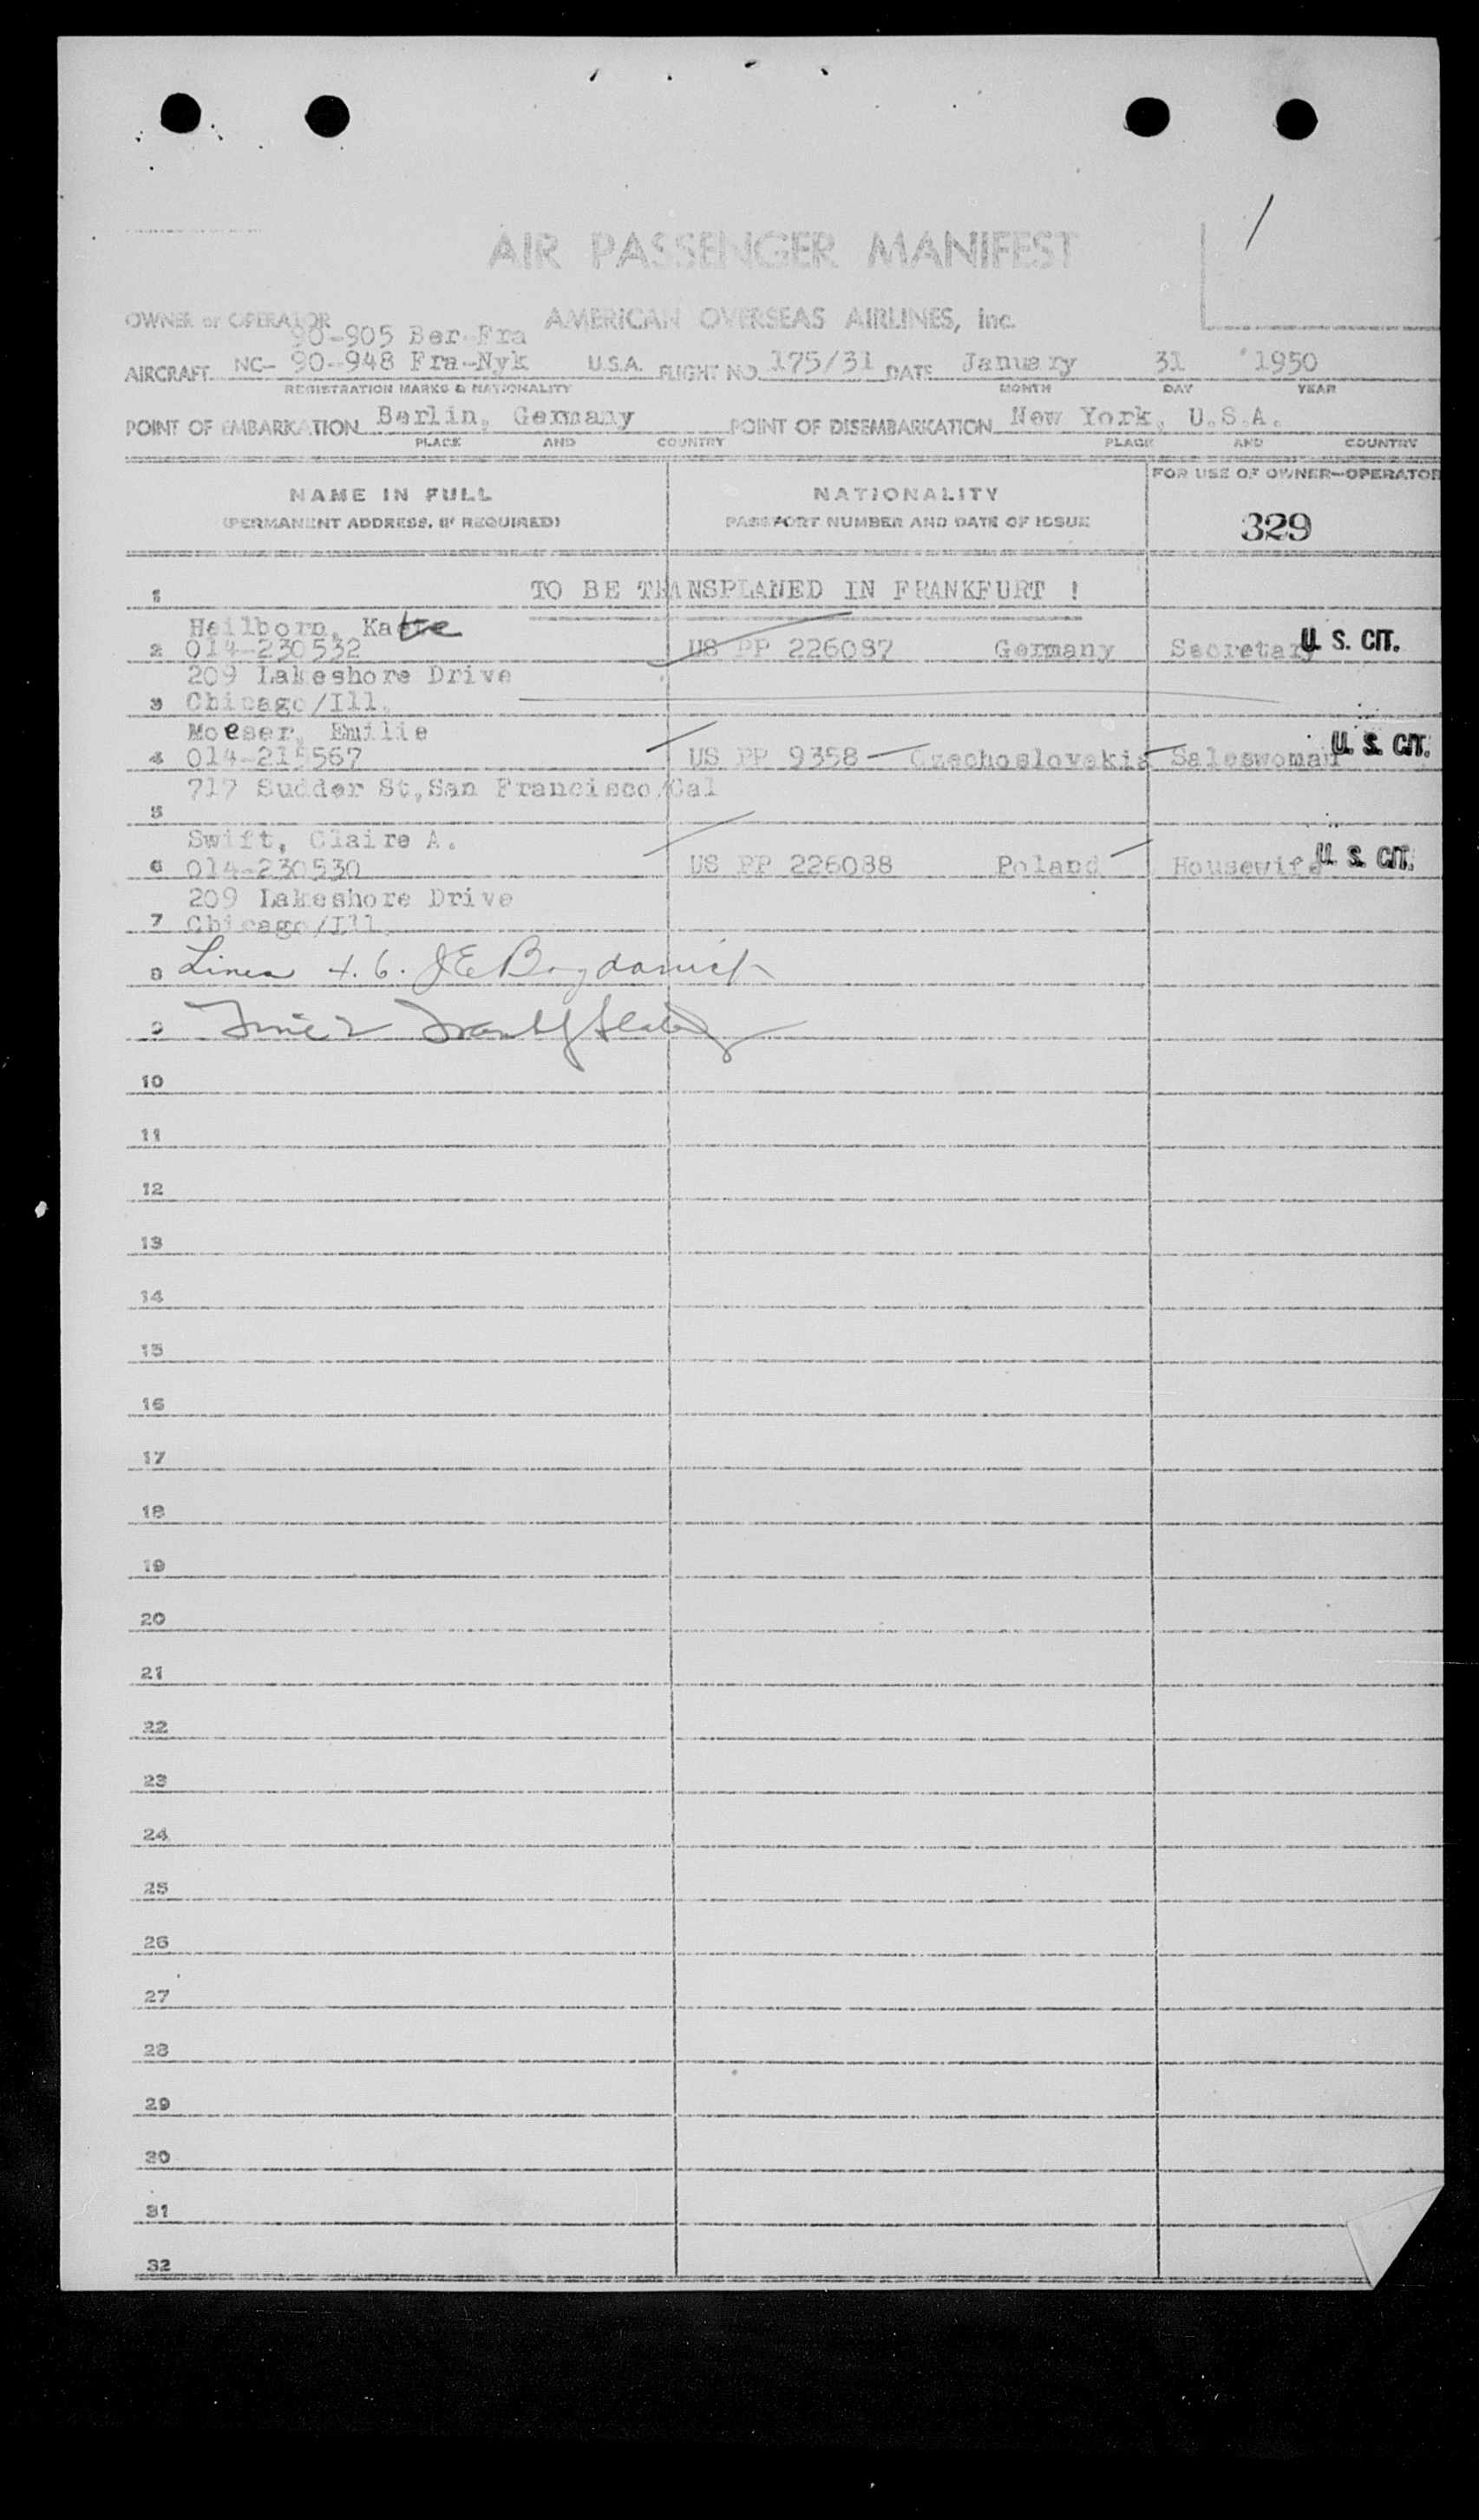 AIR PASSENGER MANIFEST
/
OWNER or OPERATOR AMERICAN OVERSEAS AIRLINES, Inc.
90-905 Ber-Fra
AIRCRAFT NC- 90-948 Fra-Nyk U.S.A. FLIGHT NO. 175/31 DATE January 31 1950
REGISTRATION MARKS & NATIONALITY MONTH DAY YEAR
POINT OF EMBARKATION Berlin, Germany POINT OF DISEMBARKATION New York, U.S.A.
PLACE AND COUNTRY PLACE AND COUNTRY
NAME IN FULL NATIONALITY FOR USE OF OWNER-OPERATOR
(PERMANENT ADDRESS, IF REQUIRED) PASSPORT NUMBER AND DATE OF ISSUE 329
1 TO BE TRANSPLANED IN FRANKFURT !
Heilborn, Kaete
2 014-230532 US PP 226087 Germany Secretary U. S. CIT.
209 Lakeshore Drive
3 Chicago/Ill.
Moeser, Emilie
4 014-215567 US PP 9358 Czechoslovakia Saleswoman U. S. CIT.
717 Sudder St,San Francisco/Cal
5
Swift, Claire A.
6 014-230530 US PP 226088 Poland Housewife U. S. CIT.
209 Lakeshore Drive
7 Chicago/Ill.
8 Lines 4. 6. JE
9
10
11
12
13
14
15
16
17
18
19
20
21
22
23
24
25
26
27
28
29
30
31
32